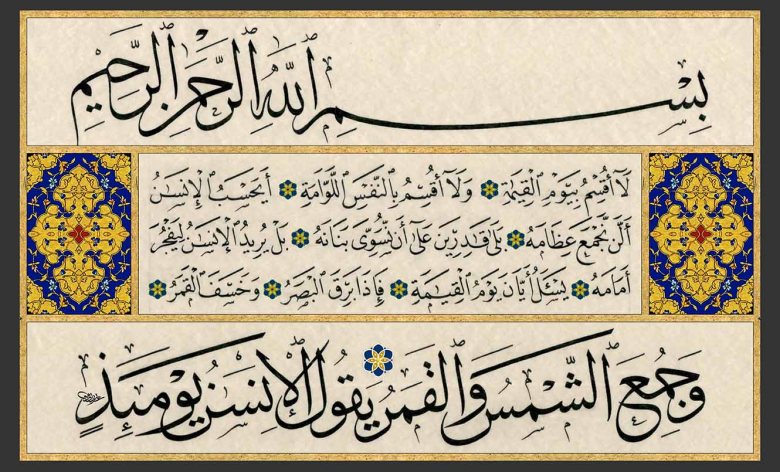 بِسْمِ اللهِ الرَّحْمٰنِ الرَّحِيمِ
لَآ أُقْسِمُ بِيَوْمِ الْقِيٰمَةِ وَلَآ أُقْسِمُ بِالنَّفْسِ اللَّوَّامَةِ أَيَحْسَبُ الْإِنْسٰنُ
أَلَّنْ نَجْمَعَ عِظَامَهُ بَلٰى قٰدِرِينَ عَلٰٓى أَنْ نُسَوِّىَ بَنَانَهُ بَلْ يُرِيدُ الْإِنْسٰنُ لِيَفْجُرَ
أَمَامَهُ يَسْـَٔلُ أَيَّانَ يَوْمُ الْقِيٰمَةِ فَإِذَا بَرِقَ الْبَصَرُ وَخَسَفَ الْقَمَرُ
وَجُمِعَ الشَّمْسُ وَالْقَمَرُ يَقُولُ الْإِنْسٰنُ يَوْمَئِذٍ